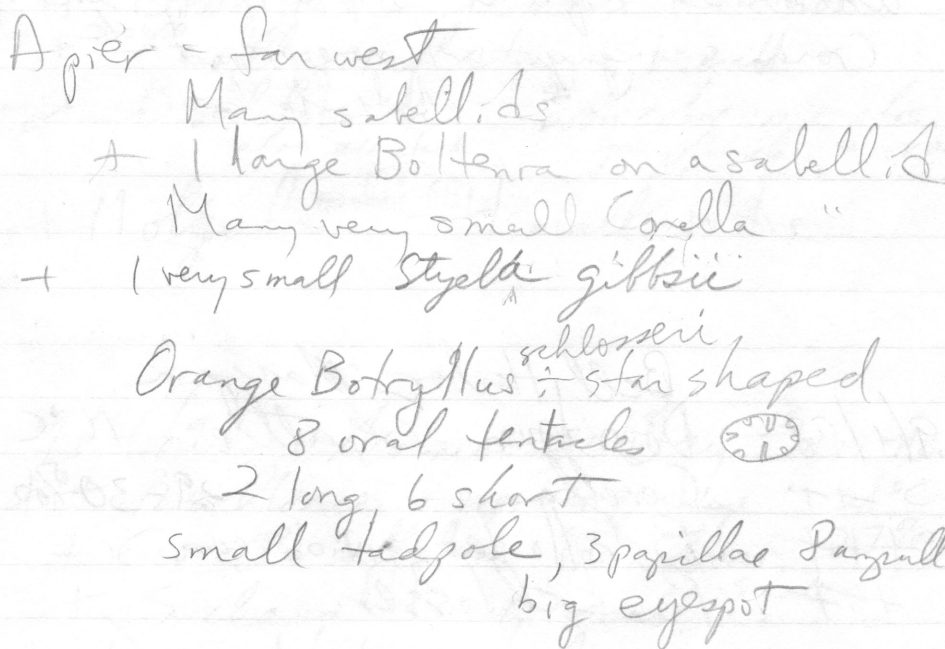 A pier - far west
Many sabellids
+ 1 large Boltenia on a sabellid
Many very small Corella "
+ 1 very small Styela gibbsii
schlosseri
Orange Botryllus - star shaped
8 oral tentacles
2 long, 6 short
small tadpole, 3 papillae 8 ampull
big eyespot